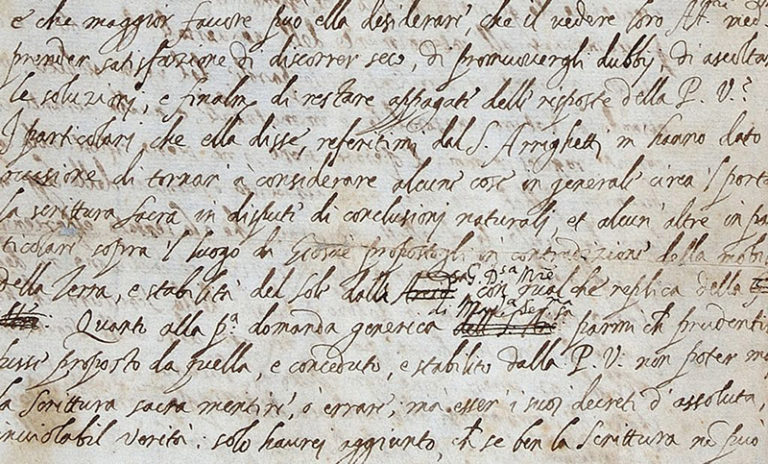 e che maggior favore può ella desiderare, che il vedere loro Alt.ze med.
prender satisfazione di discorrer seco, di promuovergli dubbij, di ascoltar
le soluzioni, e finalm. di restare appagate delle risposte della P. V.?
I particolari che ella disse, referitimi dal S. Arrighetti m'hanno dato
occasione di tornar à considerare alcune cose in generale circa 'l porta
la scrittura sacra in dispute di conclusioni naturali, et alcun'altre in par
ticolare sopra 'l luogo di Giosue propostogli in contradizione della mobil
della Terra, e stabilità del Sole dalla con qualche replica della
Quanto alla p.a domanda generica di parmi ch prudentis
fusse proposto da quella, e conceduto, e stabilito dalla P. V. non poter mai
la Scrittura sacra mentire, ò errare, ma esser i suoi decreti d'assoluta,
inviolabil verità: solo haurei aggiunto, ch se ben la Scrittura nō può